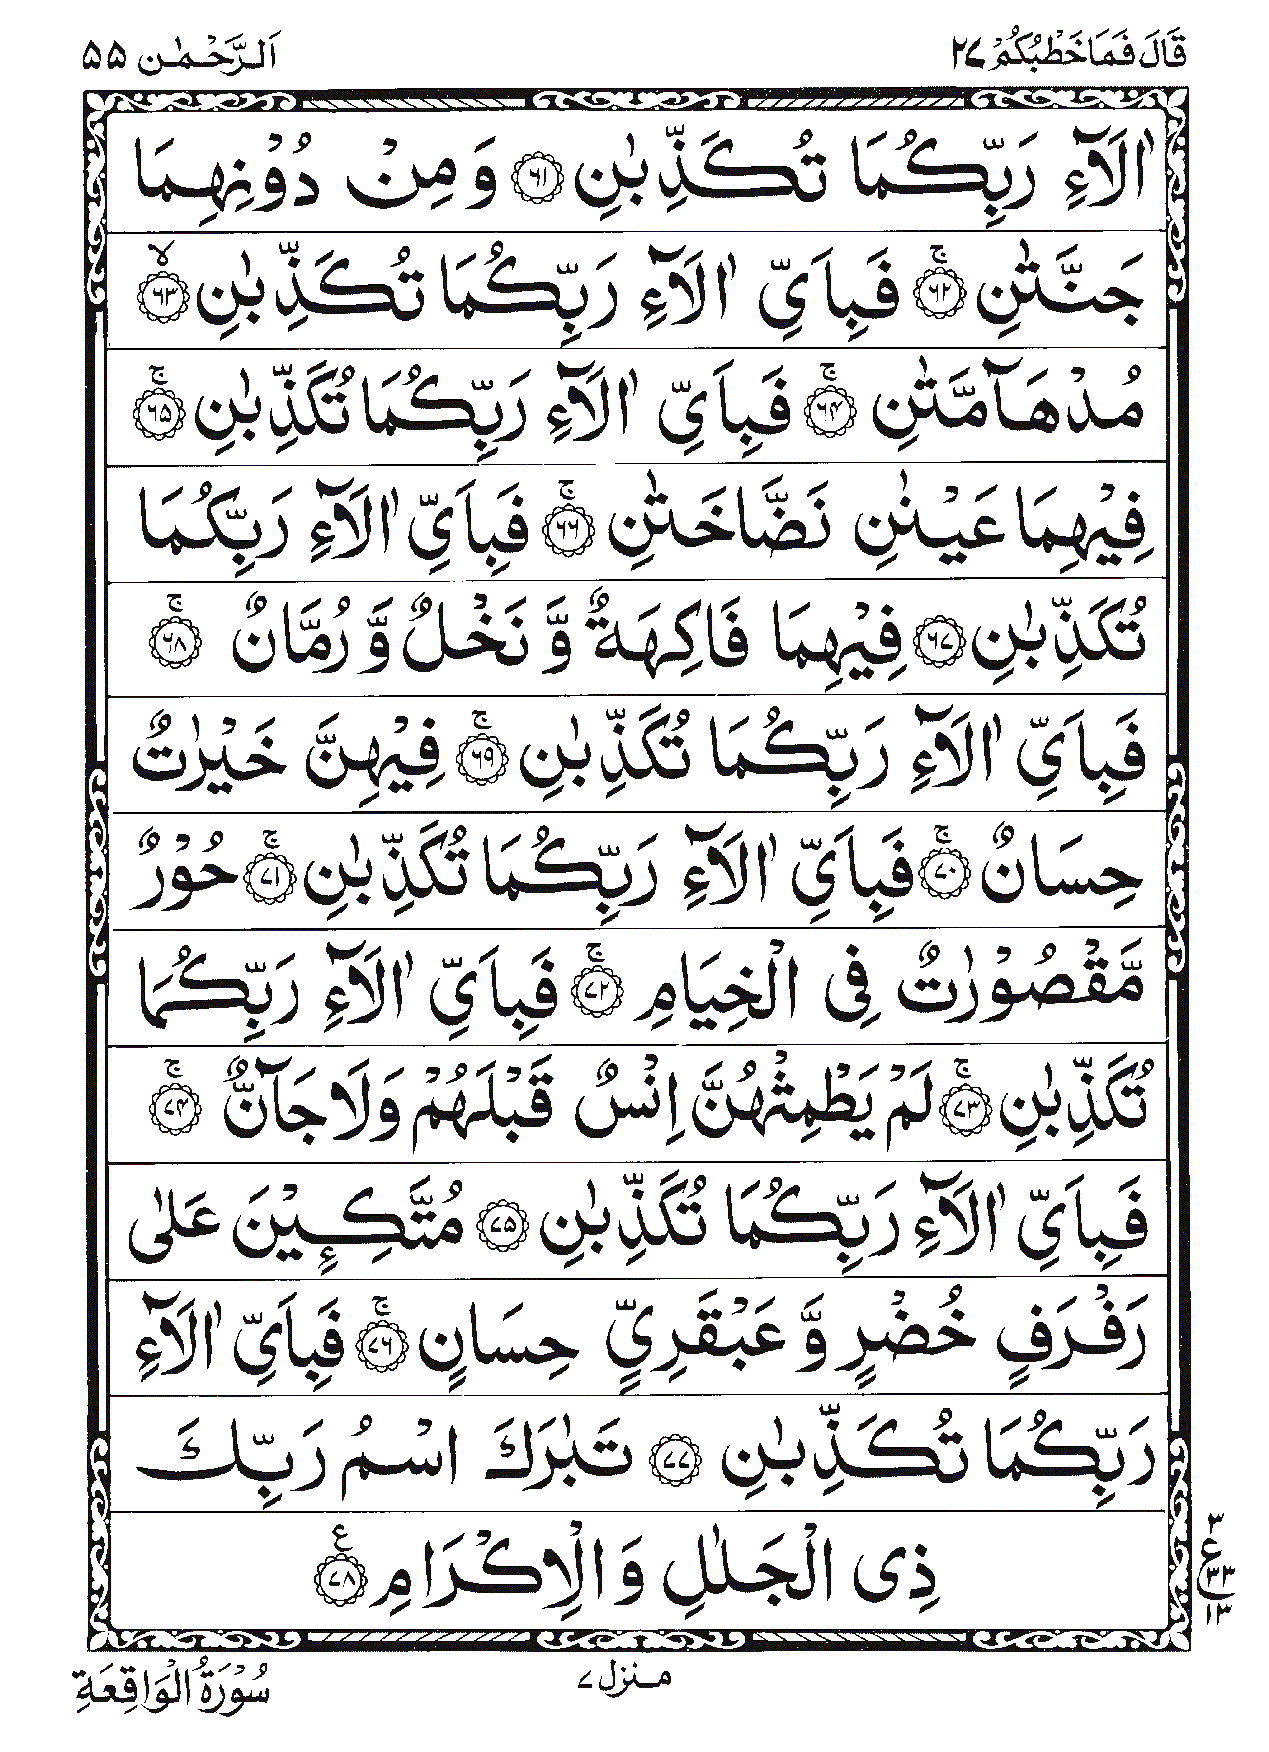 قَالَ فَمَا خَطْبُكُمْ ٢٧
اَلرَّحْمٰن ٥٥
اٰلَآءِ رَبِّكُمَا تُكَذِّبٰنِ ﴿٦١﴾ وَمِنْ دُوْنِهِمَا
جَنَّتٰنِ ۚ﴿٦٢﴾ فَبِاَيِّ اٰلَآءِ رَبِّكُمَا تُكَذِّبٰنِ ۙ﴿٦٣﴾
مُدْهَآمَّتٰنِ ۚ﴿٦٤﴾ فَبِاَيِّ اٰلَآءِ رَبِّكُمَا تُكَذِّبٰنِ ۚ﴿٦٥﴾
فِيْهِمَا عَيْنٰنِ نَضَّاخَتٰنِ ۚ﴿٦٦﴾ فَبِاَيِّ اٰلَآءِ رَبِّكُمَا
تُكَذِّبٰنِ ﴿٦٧﴾ فِيْهِمَا فَاكِهَةٌ وَّ نَخْلٌ وَّ رُمَّانٌ ۚ﴿٦٨﴾
فَبِاَيِّ اٰلَآءِ رَبِّكُمَا تُكَذِّبٰنِ ۚ﴿٦٩﴾ فِيْهِنَّ خَيْرٰتٌ
حِسَانٌ ۚ﴿٧٠﴾ فَبِاَيِّ اٰلَآءِ رَبِّكُمَا تُكَذِّبٰنِ ۚ﴿٧١﴾ حُوْرٌ
مَّقْصُوْرٰتٌ فِى الْخِيَامِ ۚ﴿٧٢﴾ فَبِاَيِّ اٰلَآءِ رَبِّكُمَا
تُكَذِّبٰنِ ۚ﴿٧٣﴾ لَمْ يَطْمِثْهُنَّ اِنْسٌ قَبْلَهُمْ وَلَا جَآنٌّ ۚ﴿٧٤﴾
فَبِاَيِّ اٰلَآءِ رَبِّكُمَا تُكَذِّبٰنِ ﴿٧٥﴾ مُتَّكِـِٕيْنَ عَلٰى
رَفْرَفٍ خُضْرٍ وَّ عَبْقَرِيٍّ حِسَانٍ ۚ﴿٧٦﴾ فَبِاَيِّ اٰلَآءِ
رَبِّكُمَا تُكَذِّبٰنِ ﴿٧٧﴾ تَبٰرَكَ اسْمُ رَبِّكَ
ذِى الْجَلٰلِ وَ الْاِكْرَامِ ﴿٧٨﴾ ع
٣
ع
٣٣
١٣
منزل ٧
سُوْرَةُ الْوَاقِعَةِ